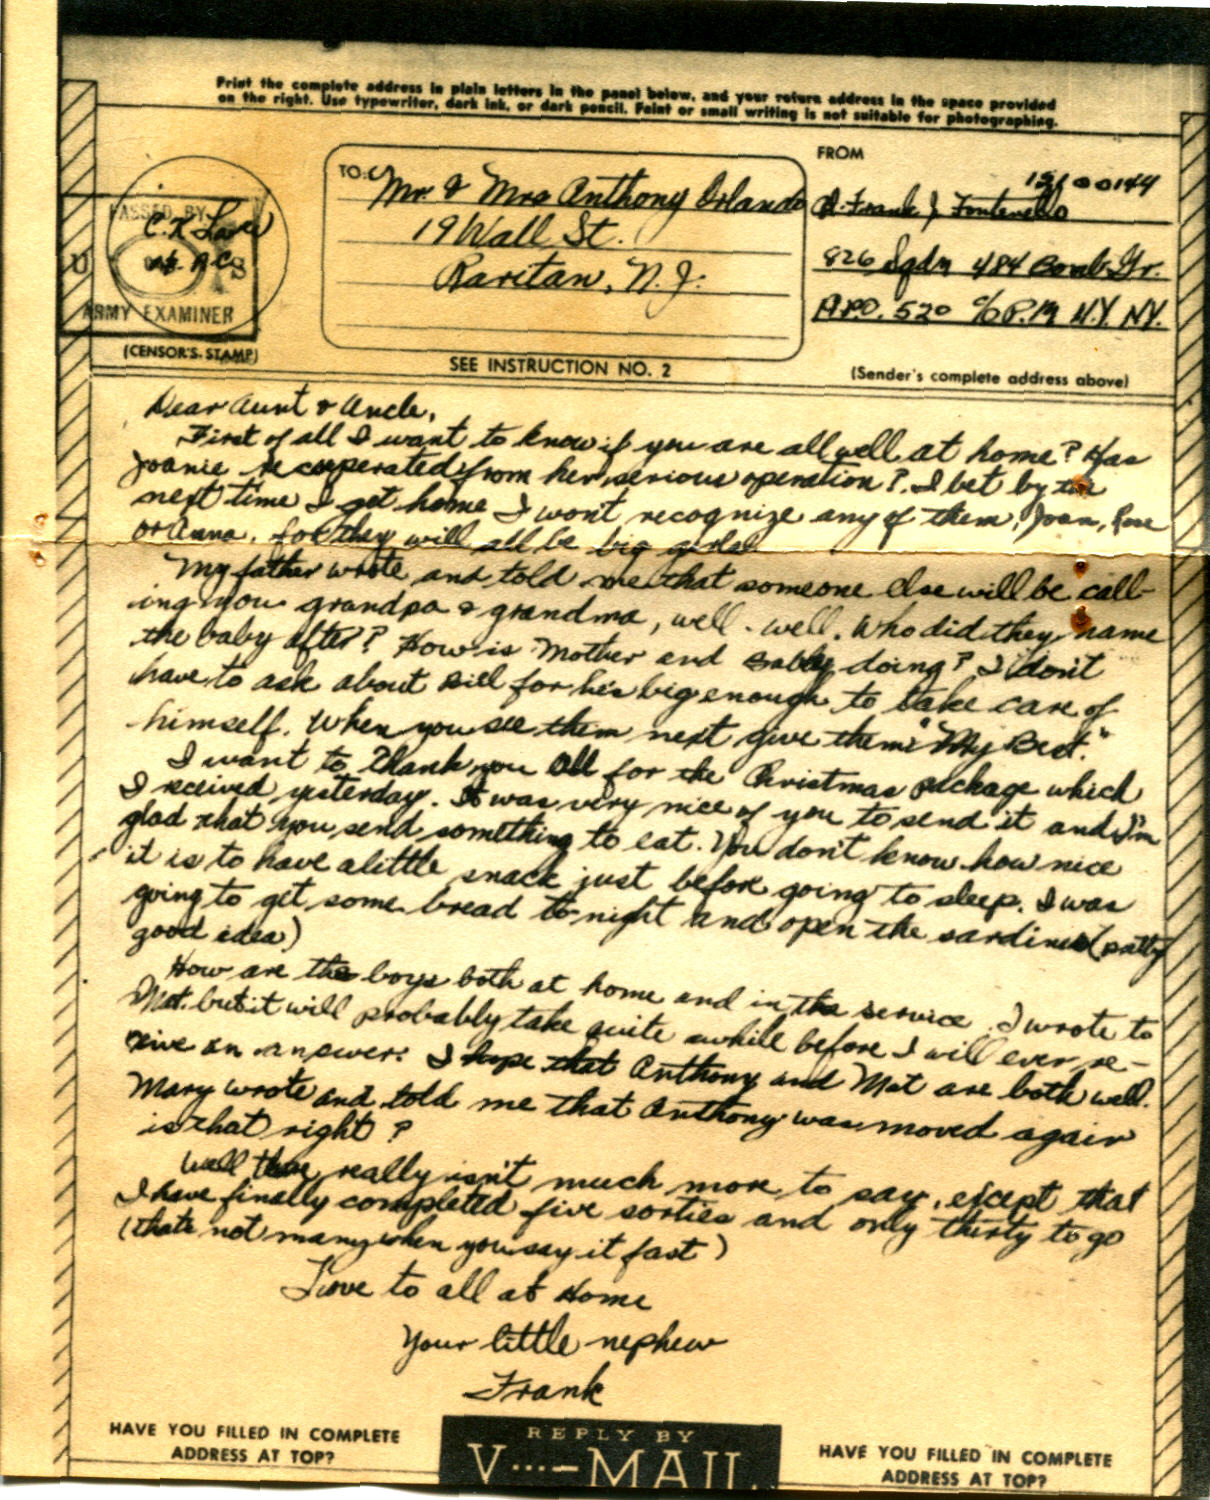 Print the complete address in plain letters in the panel below, and your return address in the space provided
on the right. Use typewriter, dark ink, or dark pencil. Faint or small writing is not suitable for photographing.
FROM
TO:
Mr. & Mrs Anthony Orlando
19 Wall St.
Raritan, N.J.
Frank J Fontenello
826 Sqdn 484 Bomb Gr.
A.P.O. 520 c/o P.M N.Y. N.Y.
PASSED BY
U S
ARMY EXAMINER
(CENSOR'S STAMP)
SEE INSTRUCTION NO. 2
(Sender's complete address above)
Dear Aunt & Uncle,
First of all I want to know if you are all well at home? Has
Joanie recuperated from her serious operation? I bet by the
next time I get home I wont recognize any of them, Joan, Rose
or Anna, for they will all be big girls.
My father wrote and told me that someone else will be call-
ing you grandpa & grandma, well - well. Who did they name
the baby after? How is Mother and doing? I don't
have to ask about Bill for he's big enough to take care of
himself. When you see them next give them "My Best."
I want to thank you all for the Christmas package which
I received yesterday. It was very nice of you to send it and I'm
glad that you send something to eat. You don't know how nice
it is to have a little snack just before going to sleep. I was
going to get some bread to-night and open the sardines (pretty
good idea)
How are the boys both at home and in the service. I wrote to
Mat. but it will probably take quite awhile before I will ever re-
ceive an answer. I hope that Anthony and Mat are both well.
Mary wrote and told me that Anthony was moved again
is that right?
Well there really isn't much more to say, except that
I have finally completed five sorties and only thirty to go
(thats not many when you say it fast)
Love to all at Home
Your little nephew
Frank
HAVE YOU FILLED IN COMPLETE
ADDRESS AT TOP?
REPLY BY
V···—MAIL
HAVE YOU FILLED IN COMPLETE
ADDRESS AT TOP?